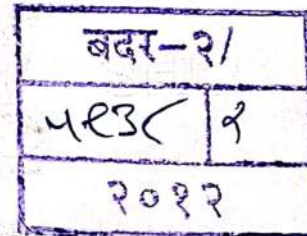 बदर-२/
५१३८ | १
२०१२